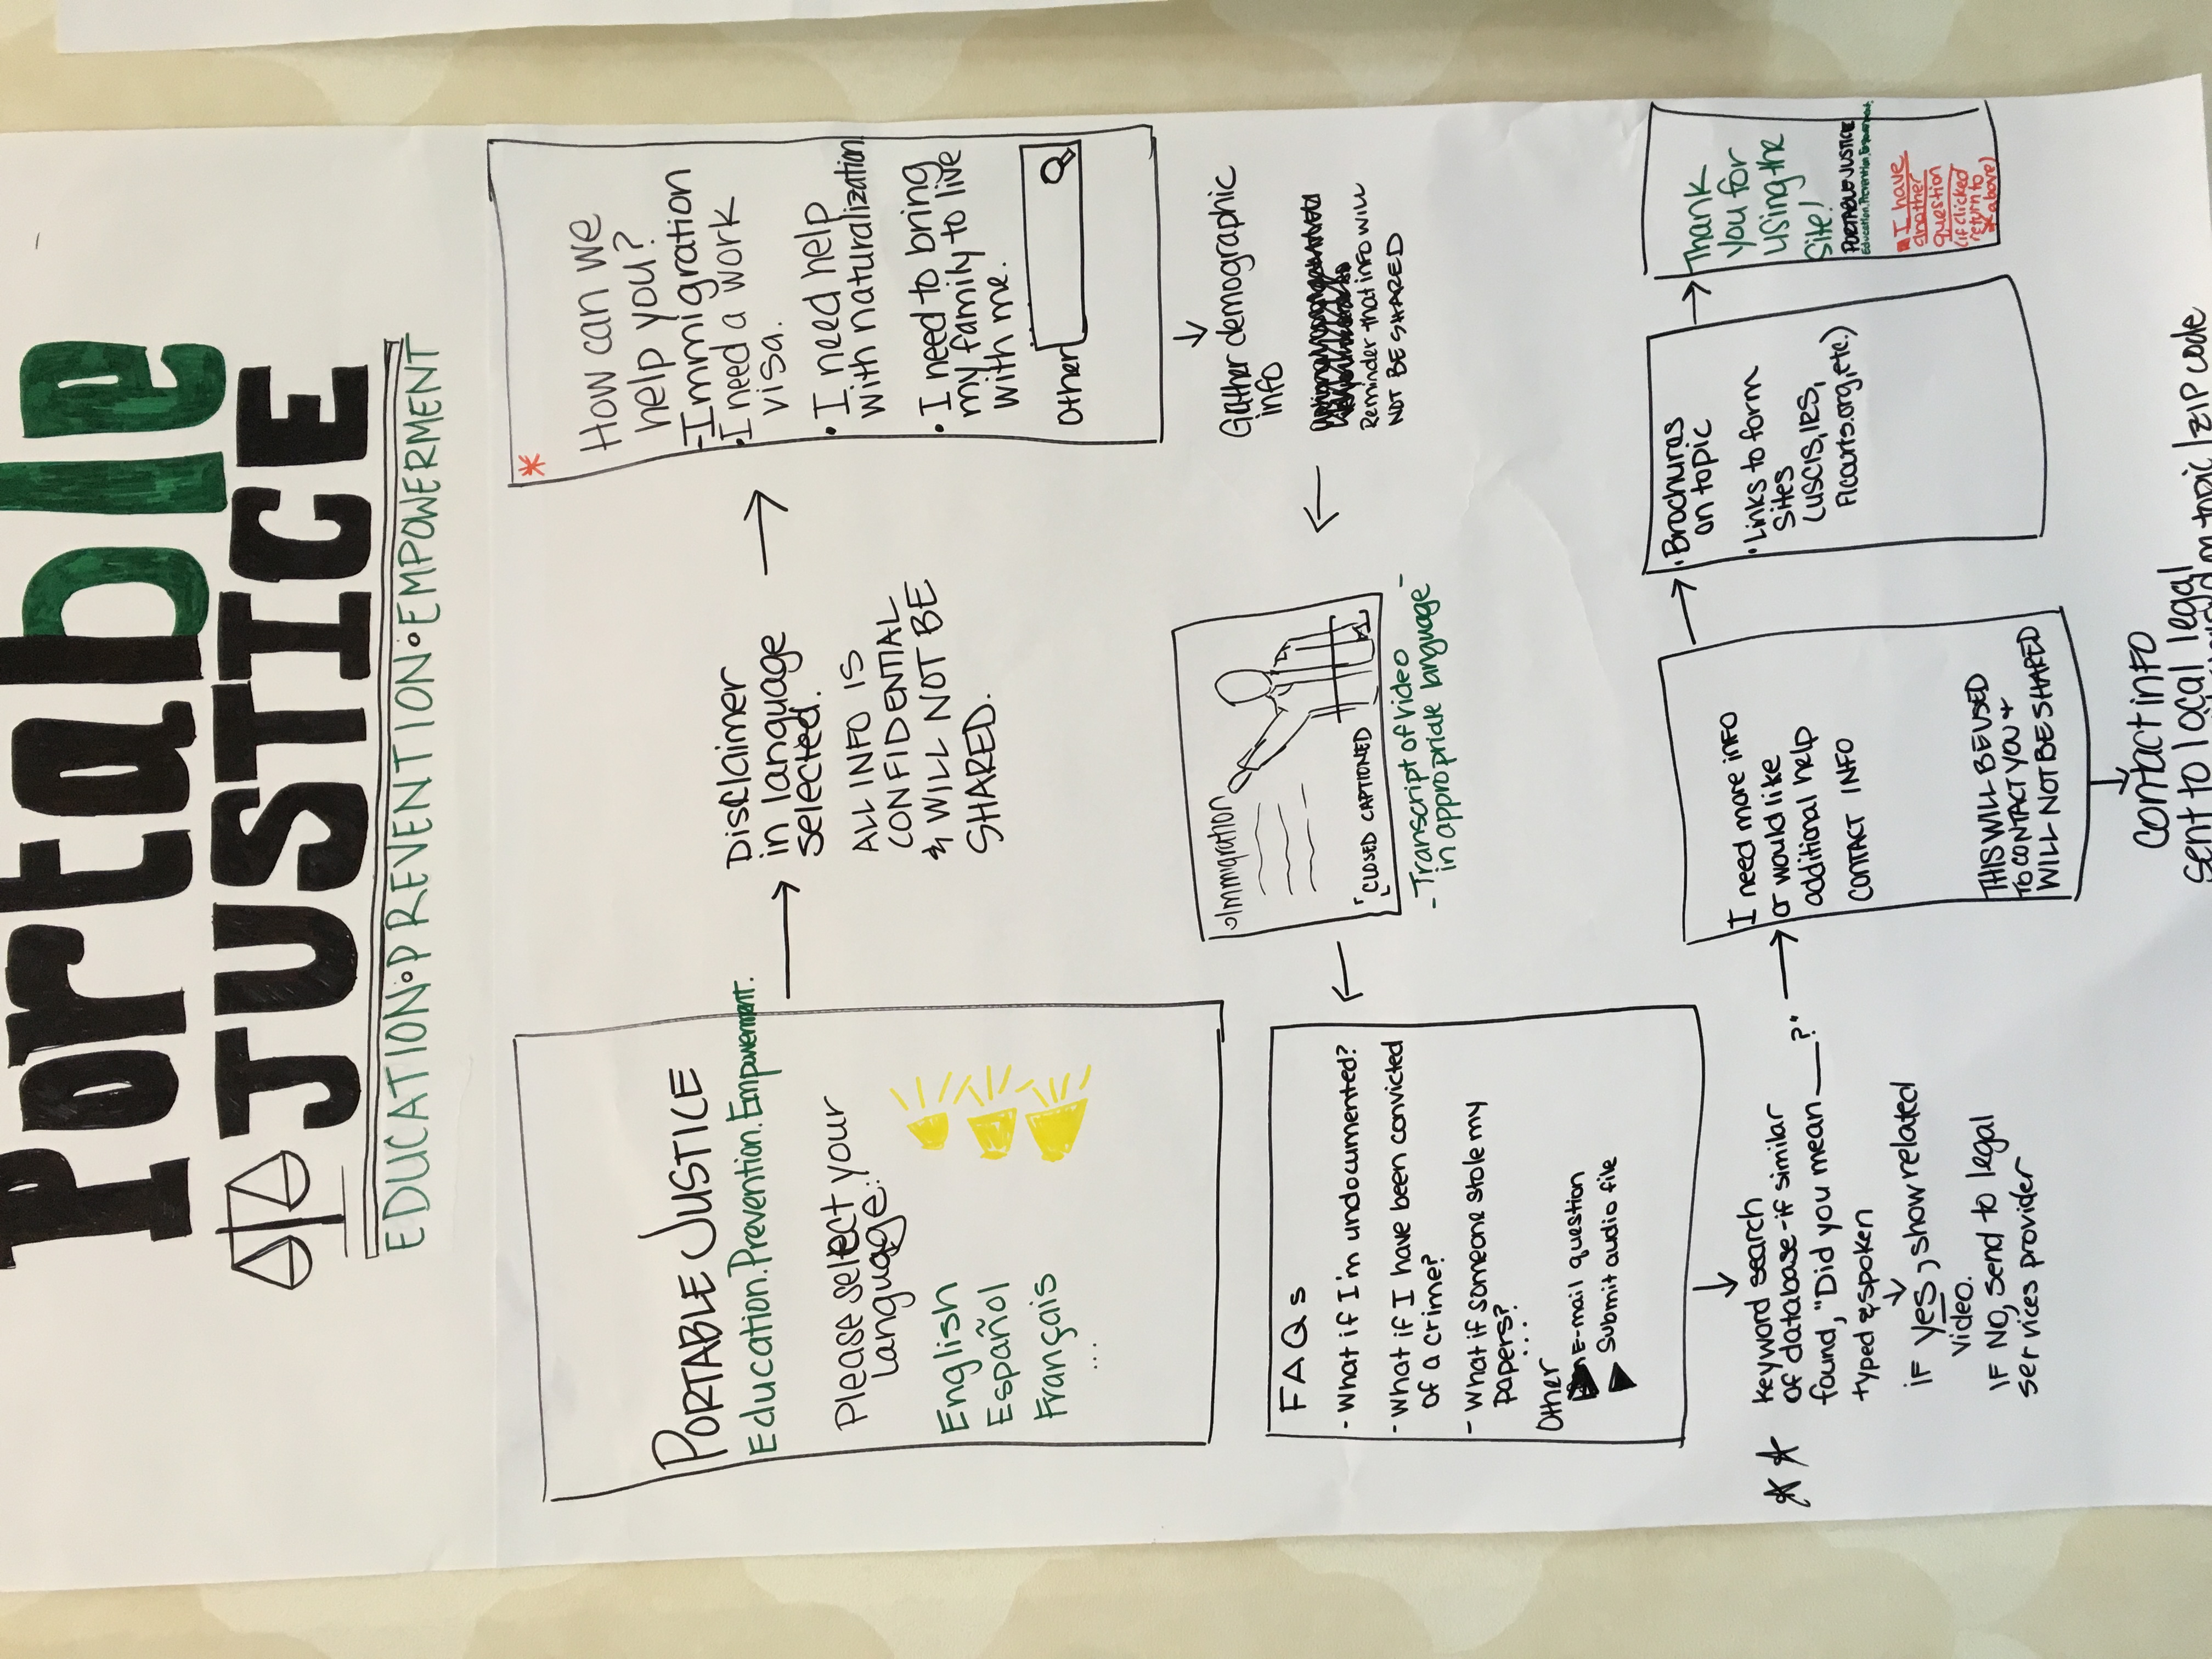 Portable
JUSTICE
EDUCATION•PREVENTION•EMPOWERMENT
PORTABLE JUSTICE
Education.Prevention.Empowerment.
Please select your
language:
English
Español
Français
...
Disclaimer
in language
selected.
ALL INFO IS
CONFIDENTIAL
& WILL NOT BE
SHARED.
*
How can we
help you?
-Immigration
•I need a work
visa.
• I need help
with naturalization
• I need to bring
my family to live
with me.
Other
Gather demographic
info
Reminder that info WILL
NOT BE SHARED
Immigration
"CLOSED CAPTIONED"
-Transcript of video
in appropriate language-
FAQs
- What if I'm undocumented?
- What if I have been convicted
of a crime?
- What if someone stole my
papers?
...
Other
E-mail question
Submit audio file
keyword search
of database-if similar
found, "Did you mean___?"
typed & spoken
IF yes, show related
video.
IF NO, send to legal
services provider
I need more info
or would like
additional help
CONTACT INFO
THIS WILL BE USED
TO CONTACT YOU +
WILL NOT BE SHARED
contact info
sent to local legal
on topic/zip code
•Brochuras
on topic
•Links to form
sites
(USCIS, IRS,
Flcourts.org, etc.)
Thank
you for
using the
site!
PORTABLE JUSTICE
Education.Prevention.Empowerment.
I have
another
question
(if clicked
return to
* above)